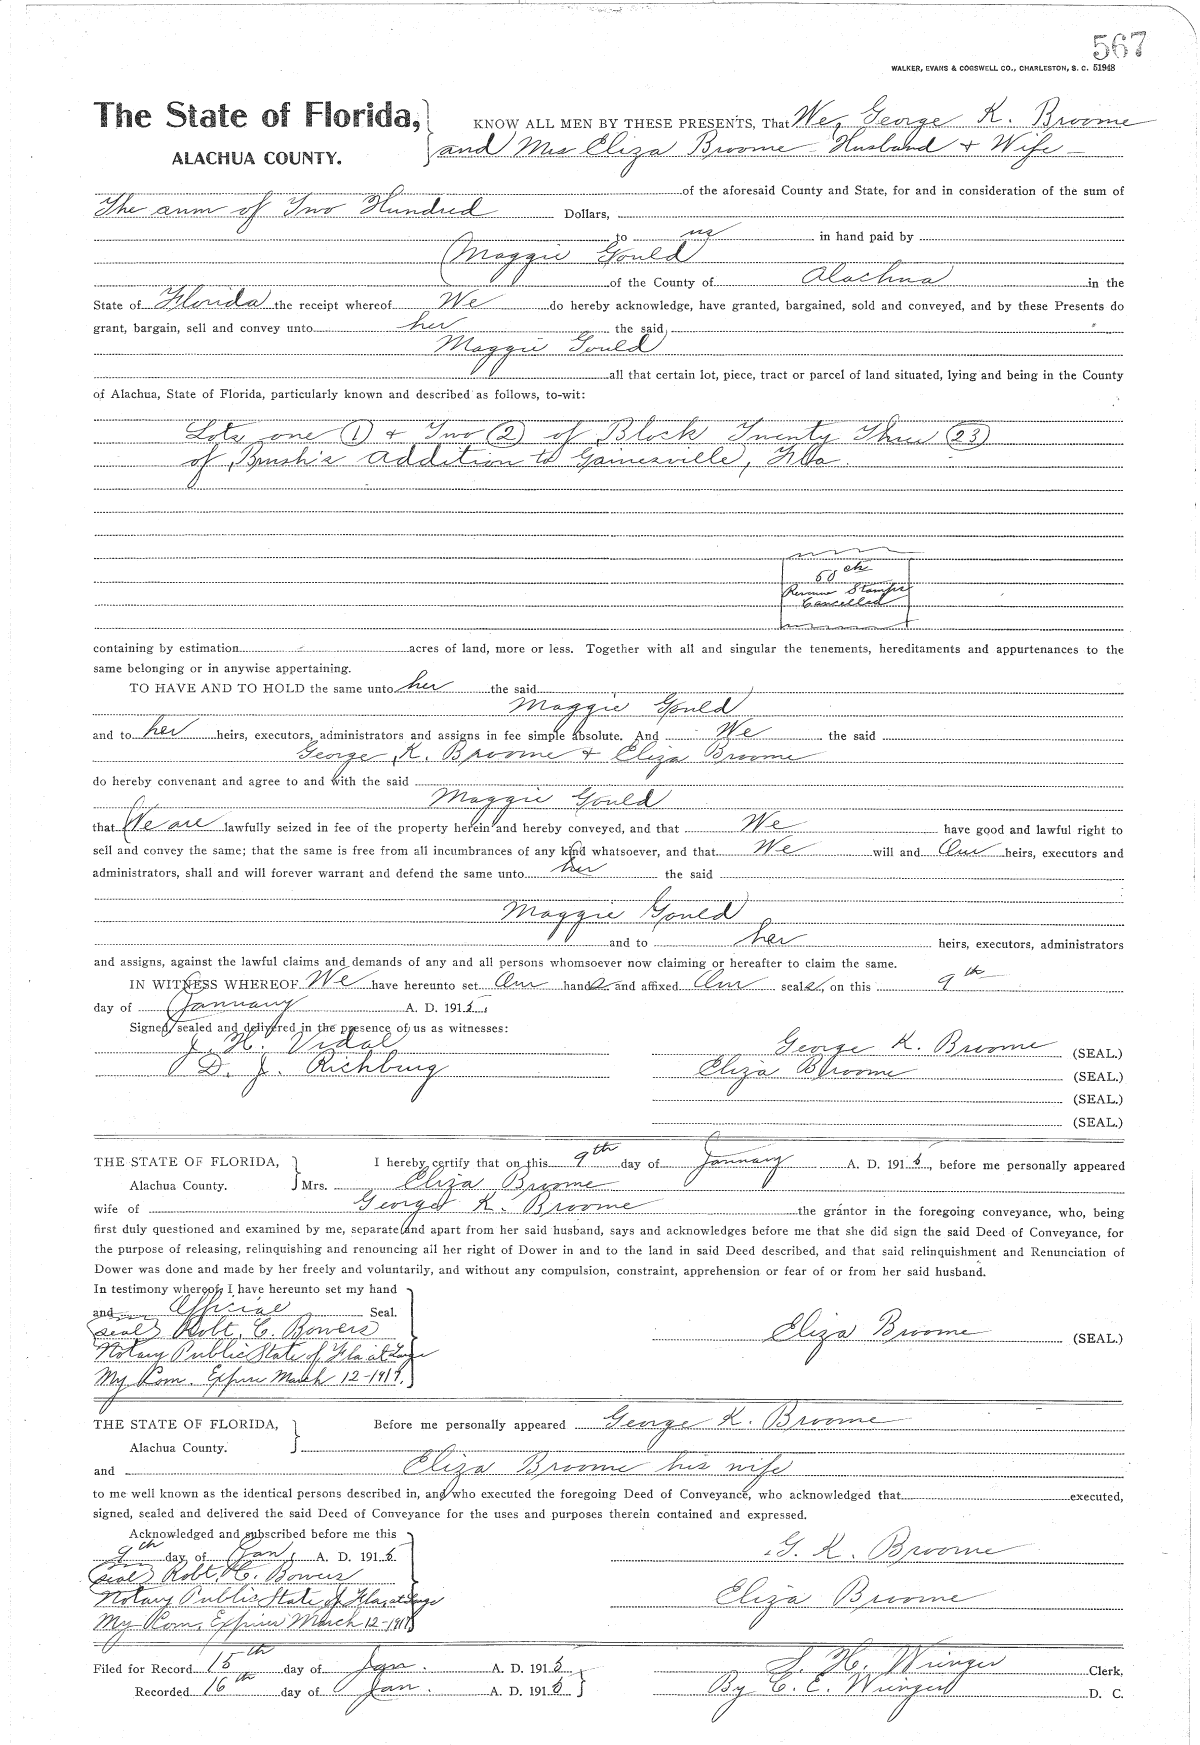 567
WALKER, EVANS & COGSWELL CO., CHARLESTON, S. C. 51948
The State of Florida, KNOW ALL MEN BY THESE PRESENTS, That We, George K. Broome
ALACHUA COUNTY. and Mrs Eliza Broome Husband & Wife
of the aforesaid County and State, for and in consideration of the sum of
The sum of Two Hundred Dollars,
to us in hand paid by
Maggie Gould
of the County of Alachua in the
State of Florida the receipt whereof We do hereby acknowledge, have granted, bargained, sold and conveyed, and by these Presents do
grant, bargain, sell and convey unto her the said
Maggie Gould
all that certain lot, piece, tract or parcel of land situated, lying and being in the County
of Alachua, State of Florida, particularly known and described as follows, to-wit:
Lots one (1) & Two (2) of Block Twenty Three (23)
of Brush's addition to Gainesville, Fla.
50 cts
Revenue Stamps
Cancelled
containing by estimation acres of land, more or less. Together with all and singular the tenements, hereditaments and appurtenances to the
same belonging or in anywise appertaining.
TO HAVE AND TO HOLD the same unto her the said
Maggie Gould
and to her heirs, executors, administrators and assigns in fee simple absolute. And We the said
George K. Broome & Eliza Broome
do hereby convenant and agree to and with the said
Maggie Gould
that We are lawfully seized in fee of the property herein and hereby conveyed, and that We have good and lawful right to
sell and convey the same; that the same is free from all incumbrances of any kind whatsoever, and that We will and Our heirs, executors and
administrators, shall and will forever warrant and defend the same unto her the said
Maggie Gould
and to her heirs, executors, administrators
and assigns, against the lawful claims and demands of any and all persons whomsoever now claiming or hereafter to claim the same.
IN WITNESS WHEREOF We have hereunto set Our hands and affixed Our seals, on this 9th
day of January A. D. 1915,
Signed, sealed and delivered in the presence of us as witnesses:
J. H. Vidal George K. Broome (SEAL.)
D. J. Richburg Eliza Broome (SEAL.)
(SEAL.)
(SEAL.)
THE STATE OF FLORIDA, I hereby certify that on this 9th day of January A. D. 1915, before me personally appeared
Alachua County. Mrs. Eliza Broome
wife of George K. Broome the grantor in the foregoing conveyance, who, being
first duly questioned and examined by me, separate and apart from her said husband, says and acknowledges before me that she did sign the said Deed of Conveyance, for
the purpose of releasing, relinquishing and renouncing all her right of Dower in and to the land in said Deed described, and that said relinquishment and Renunciation of
Dower was done and made by her freely and voluntarily, and without any compulsion, constraint, apprehension or fear of or from her said husband.
In testimony whereof, I have hereunto set my hand
and Official Seal.
(seal) Robt. C. Bowers Eliza Broome (SEAL.)
Notary Public State of Fla at Large
My Com. Expire March 12-1917.
THE STATE OF FLORIDA, Before me personally appeared George K. Broome
Alachua County.
and Eliza Broome his wife
to me well known as the identical persons described in, and who executed the foregoing Deed of Conveyance, who acknowledged that executed,
signed, sealed and delivered the said Deed of Conveyance for the uses and purposes therein contained and expressed.
Acknowledged and subscribed before me this
9th day of Jan, A. D. 1915. G. K. Broome
(seal) Robt. C. Bowers
Notary Public State of Fla, at Large Eliza Broome
My Com, Expires March 12-1917
Filed for Record 15th day of Jan. A. D. 1915 S. H. Wienges Clerk.
Recorded 16th day of Jan. A. D. 1915 By C. E. Wienges D. C.